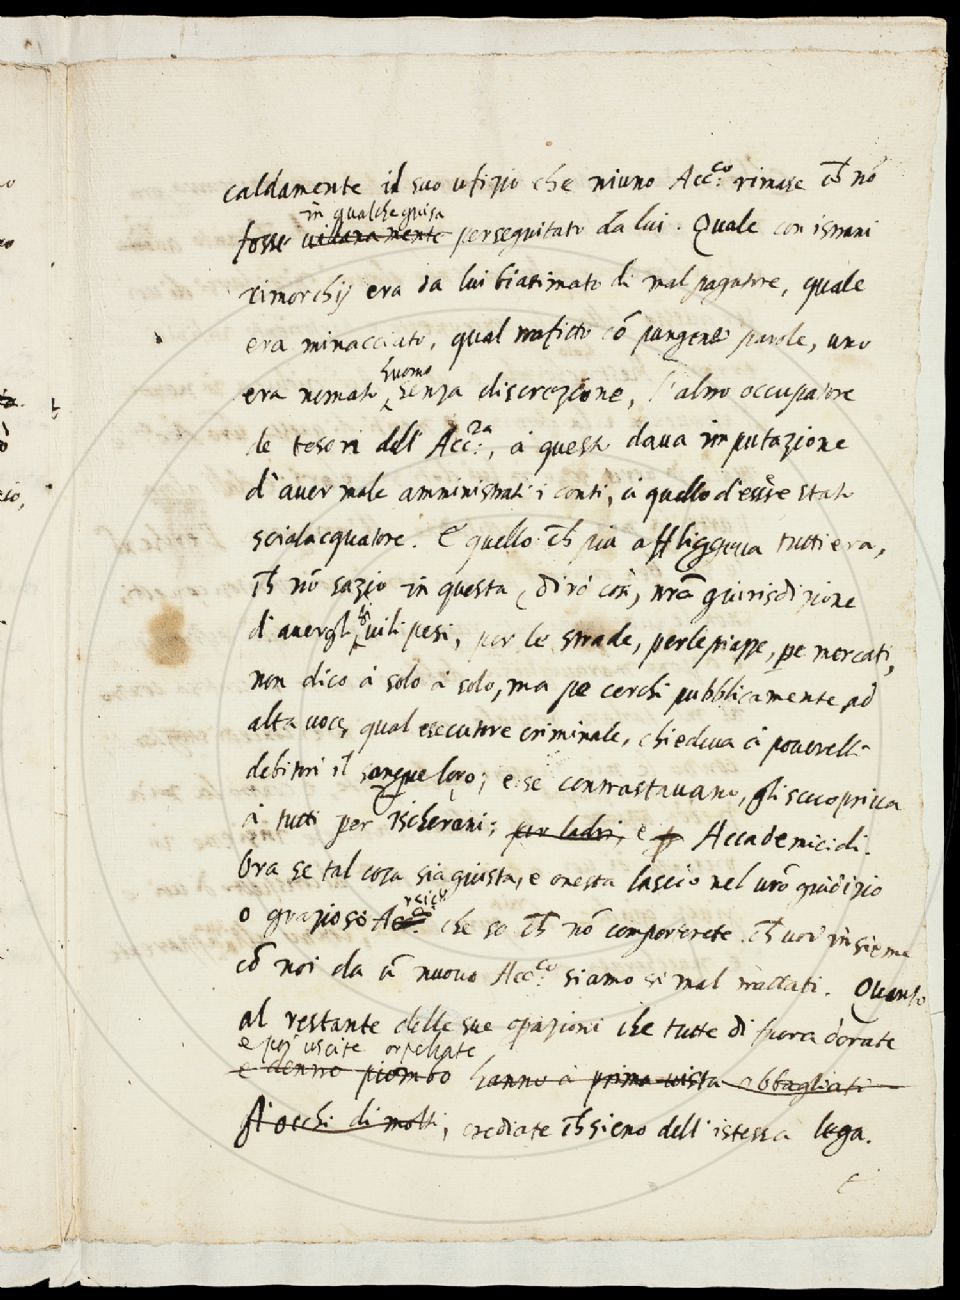 caldamente il suo ufizio che niuno Acc.co rimase ch̃ nõ
in qualche guisa
fosse villanamente perseguitato da lui. Quale con istrani
rimorchij era da lui biasimato di mal pagatore, quale
era minacciato, qual trafitto cõ pungenti parole, uno
huomo
era nomato senza discrezione, l'altro occupatore
de tesori dell' Acc.za, à questo dava imputazione
d'aver male amministrati i conti, à quello d'essere stato
scialacquatore. E quello ch̃ più affliggeva tutti era,
ch̃ nõ sazio in questa, dirò così, nr̃a giurisdizione
d'avergli vilipesi, per le strade, per le piazze, pe mercati,
non dico à solo à solo, ma pe cerchi pubblicamente ad
alta voce, qual esecutore criminale, chiedeva à poverelli
debitori il sangue loro; e se contrastavano, gli scopriva
à tutti per ischerani; per ladri, e p Accademicidi.
Ora se tal cosa sia giusta, e onesta lascio nel vr̃o giudizio
rsico
o grazioso Acc.co che so ch̃ nõ comporterete ch̃ voi insieme
cõ noi da ũ nuovo Acc.co siamo si mal trattati. Quanto
al restante delle sue opazioni che tutte di fuora dorate
e poi uscite orpellate
e dentro piombo hanno à prima vista abbagliati
gl'occhi di molti, crediate ch̃ sieno dell'istessa lega.